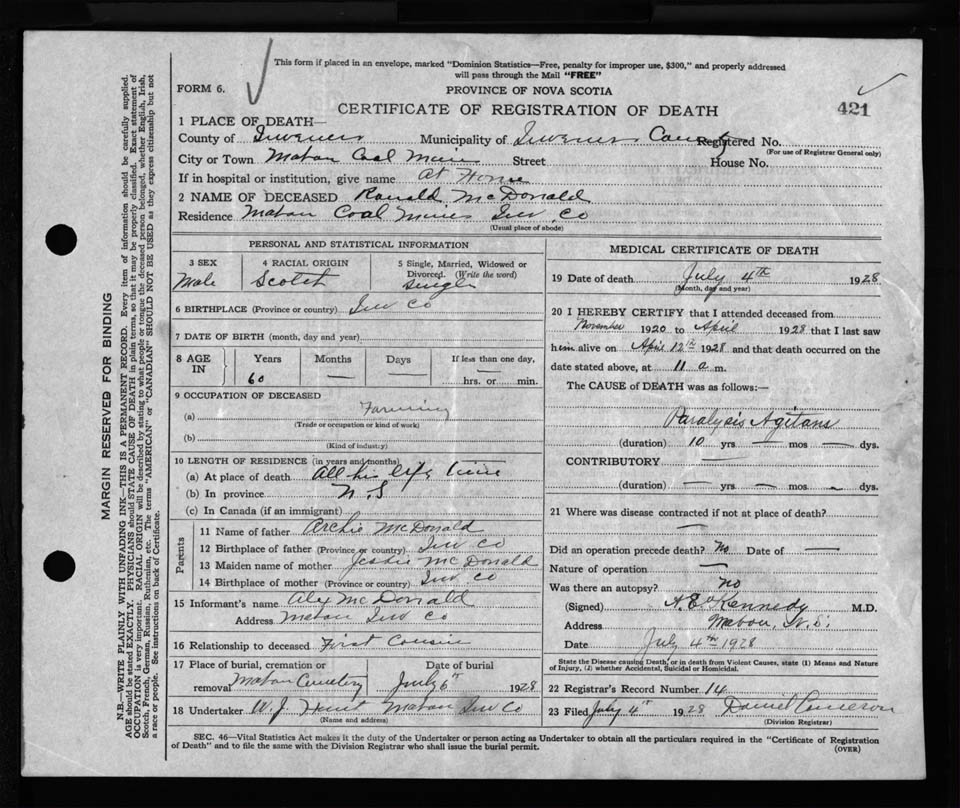 This form if placed in an envelope, marked "Dominion Statistics—Free, penalty for improper use, $300," and properly addressed
will pass through the Mail "FREE"
FORM 6.
PROVINCE OF NOVA SCOTIA
CERTIFICATE OF REGISTRATION OF DEATH
421
1 PLACE OF DEATH—
County of Inverness Municipality of Inverness County Registered No.
(For use of Registrar General only)
City or Town Mabou Coal Mines Street House No.
If in hospital or institution, give name At Home
2 NAME OF DECEASED Ronald McDonald
Residence Mabou Coal Mines Inv. Co
(Usual place of abode)
PERSONAL AND STATISTICAL INFORMATION
3 SEX 4 RACIAL ORIGIN 5 Single, Married, Widowed or
Divorced. (Write the word)
Male Scotch Single
6 BIRTHPLACE (Province or country) Inv Co
7 DATE OF BIRTH (month, day and year)
8 AGE IN Years Months Days If less than one day,
60 — — hrs. or min.
9 OCCUPATION OF DECEASED
(a) Farming
(Trade or occupation or kind of work)
(b)
(Kind of industry)
10 LENGTH OF RESIDENCE (in years and months)
(a) At place of death All his life time
(b) In province N.S
(c) In Canada (if an immigrant)
Parents
11 Name of father Archie McDonald
12 Birthplace of father (Province or country) Inv Co
13 Maiden name of mother Jessie McDonald
14 Birthplace of mother (Province or country) Inv Co
15 Informant's name Alex McDonald
Address Mabou Inv Co
16 Relationship to deceased First Cousin
17 Place of burial, cremation or Date of burial
removal Mabou Cemetery July 6th 1928
18 Undertaker W. J. Mabou Inv Co
(Name and address)
MEDICAL CERTIFICATE OF DEATH
19 Date of death July 4th 1928
(Month, day and year)
20 I HEREBY CERTIFY that I attended deceased from
November 1920 to April 1928 that I last saw
him alive on April 12th 1928 and that death occurred on the
date stated above, at 11 a m.
The CAUSE of DEATH was as follows:—
Paralysis Agitans
(duration) 10 yrs — mos — dys.
CONTRIBUTORY —
(duration) — yrs — mos — dys.
21 Where was disease contracted if not at place of death?
—
Did an operation precede death? No Date of —
Nature of operation —
Was there an autopsy? No
(Signed) Kennedy M.D.
Address Mabou, N.S.
Date July 4th 1928
State the Disease causing Death, or in death from Violent Causes, state (1) Means and Nature
of Injury, (2) whether Accidental, Suicidal or Homicidal.
22 Registrar's Record Number 14
23 Filed July 4th 1928 Daniel Cameron
(Division Registrar)
SEC. 46—Vital Statistics Act makes it the duty of the Undertaker or person acting as Undertaker to obtain all the particulars required in the "Certificate of Registration
of Death" and to file the same with the Division Registrar who shall issue the burial permit.
(OVER)
MARGIN RESERVED FOR BINDING
N.B.—WRITE PLAINLY WITH UNFADING INK—THIS IS A PERMANENT RECORD. Every item of information should be carefully supplied.
AGE should be stated EXACTLY. PHYSICIANS should STATE CAUSE OF DEATH in plain terms, so that it may be properly classified. Exact statement of
OCCUPATION is very important. RACIAL ORIGIN will be described by stating to what people or tongue the deceased person belonged, whether English, Irish,
Scotch, French, German, Russian, Ruthenian, etc. The terms "AMERICAN" or "CANADIAN" SHOULD NOT BE USED as they express citizenship but not
a race or people. See instructions on back of Certificate.